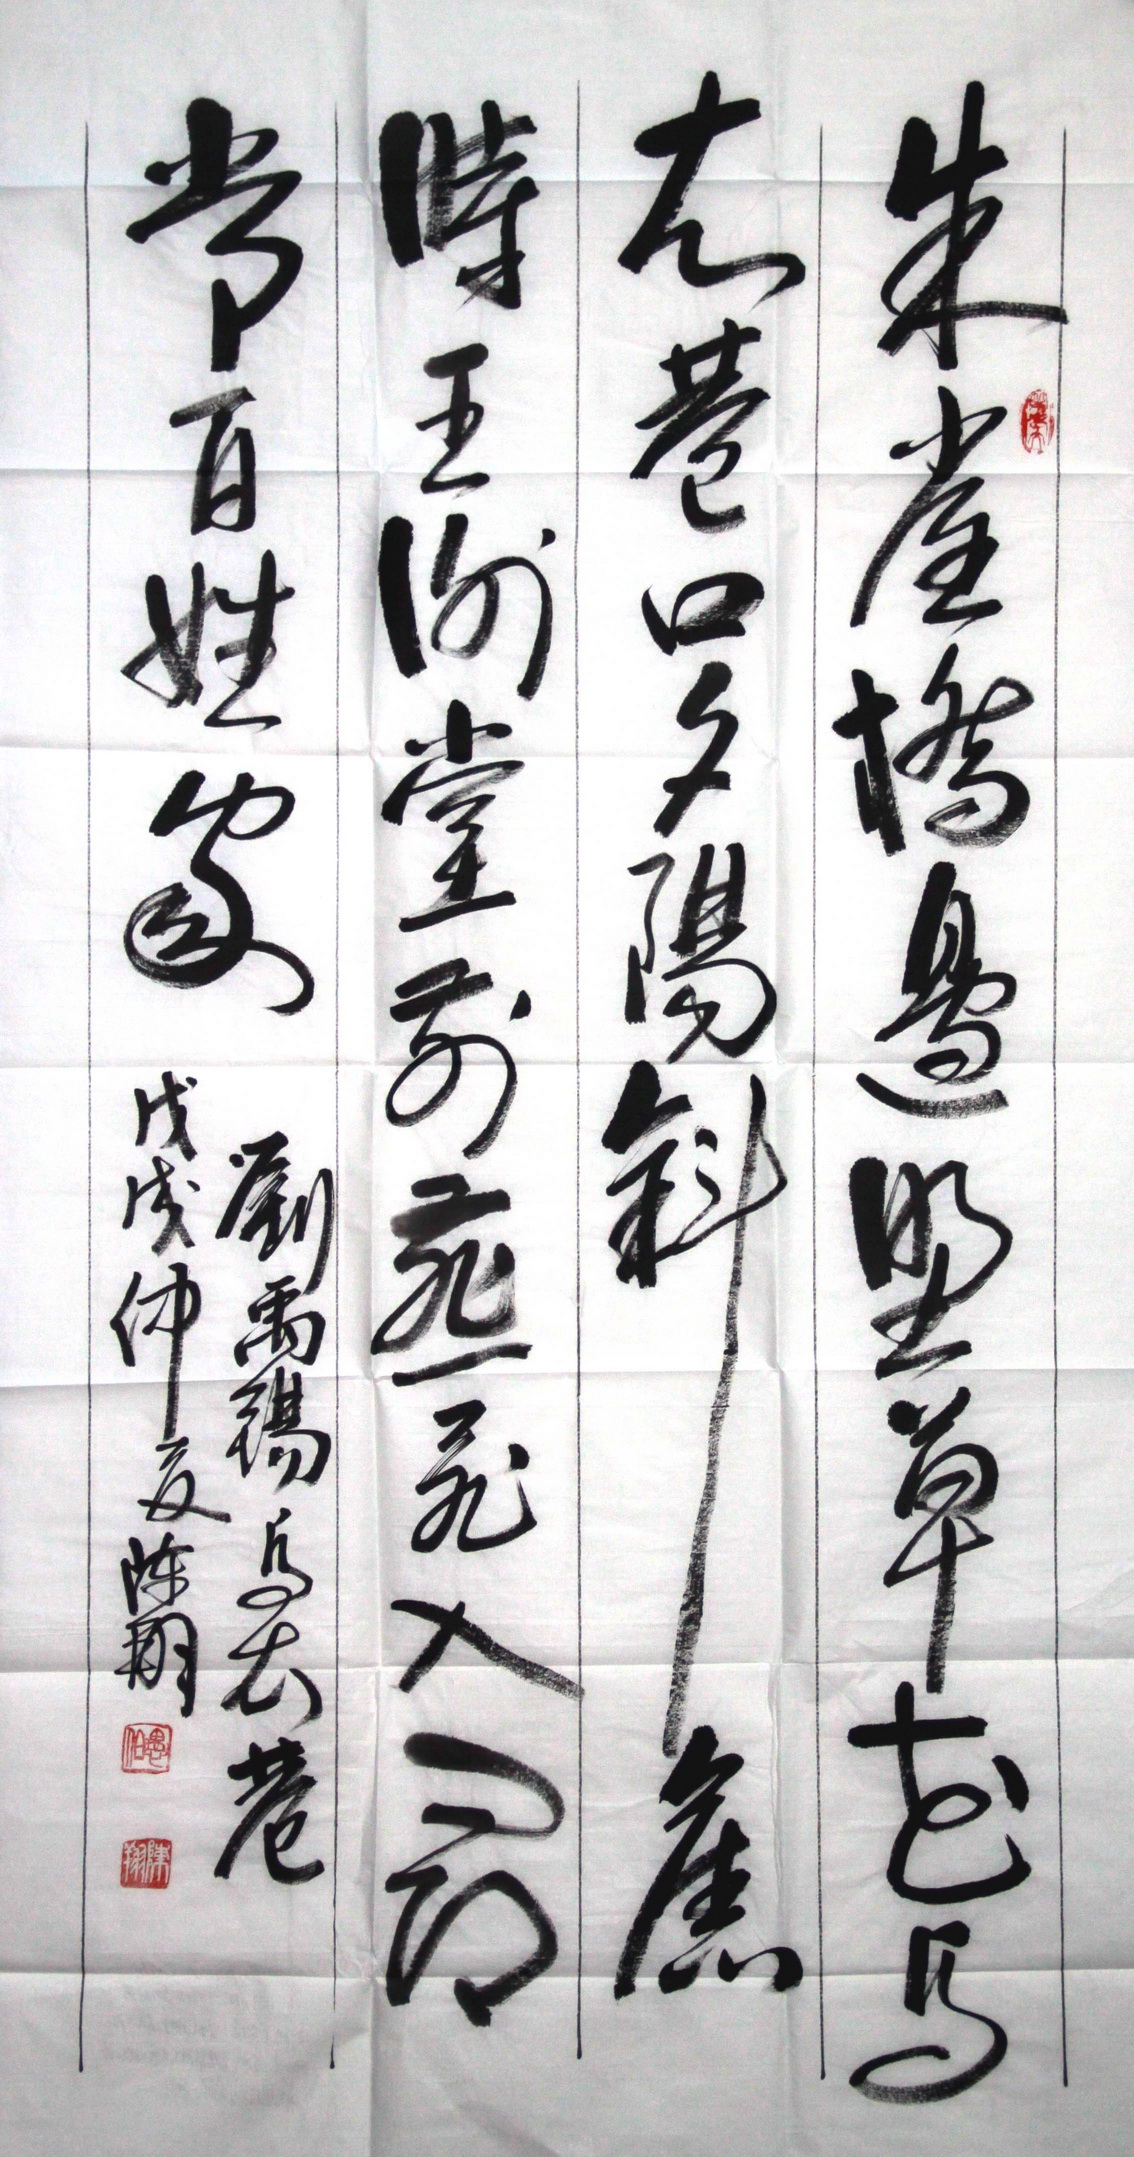 朱雀橋邊野草花烏
衣巷口夕陽斜舊
時王謝堂前燕飛入尋
常百姓家
劉禹錫烏衣巷
戊戌仲夏陈翔
陳翔